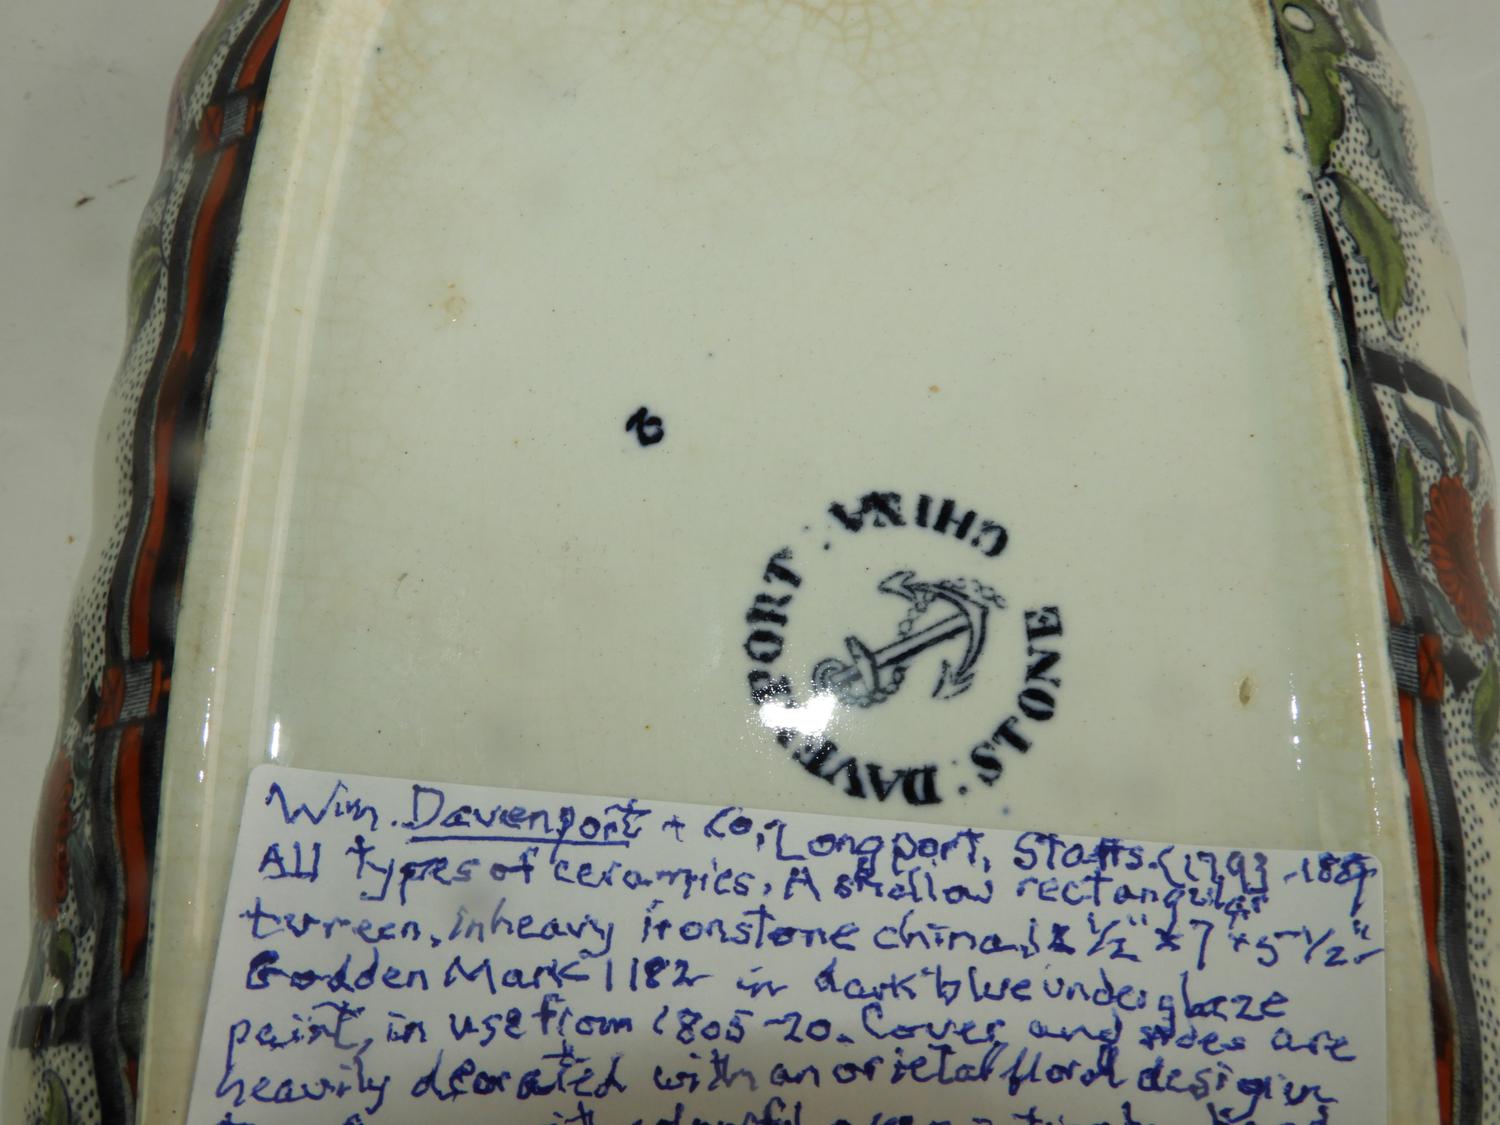 DAVENPORT : STONE CHINA :
Wm. Davenport + Co., Longport, Staffs. (1793-1887
All types of ceramics. A shallow rectangular
turreen, in heavy ironstone china, 12 1/2" x 7 x 5 1/2"
Godden Mark 1182 in dark blue underglaze
paint, in use from 1805-20. Cover and sides are
heavily decorated with an orietal floral design